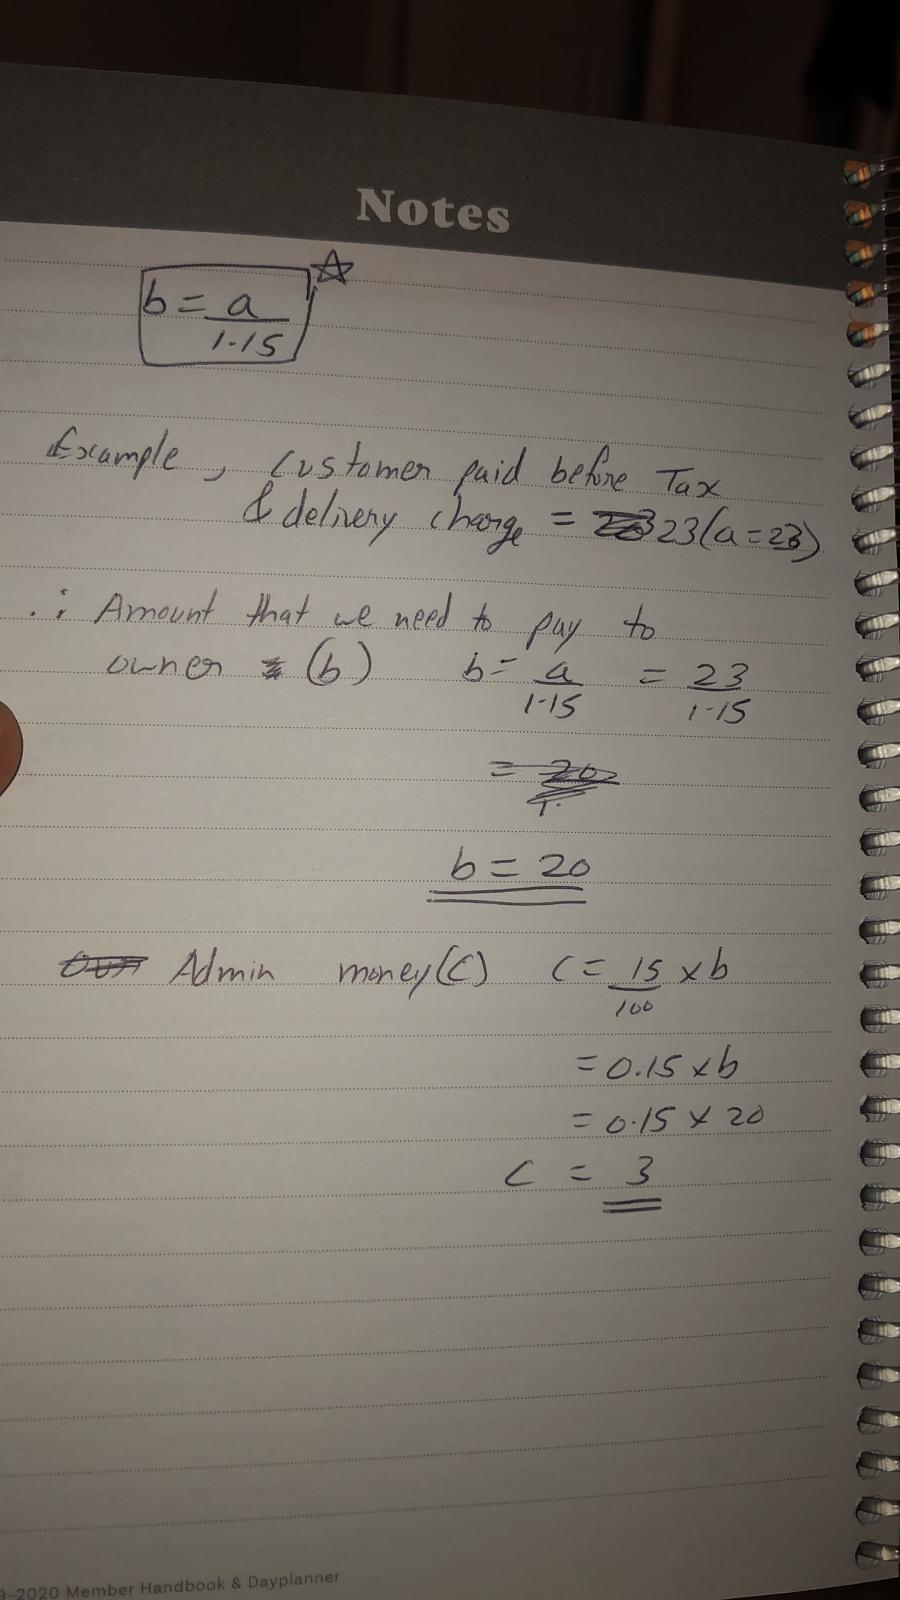 Notes
b = a
1.15
Example, Customer paid before Tax
& delivery charge = 23 (a=23)
∴ Amount that we need to pay to
owner (b) b = a = 23
1.15 1.15
= 20
b = 20
Admin money(C) C = 15 × b
100
= 0.15 × b
= 0.15 × 20
C = 3
9-2020 Member Handbook & Dayplanner